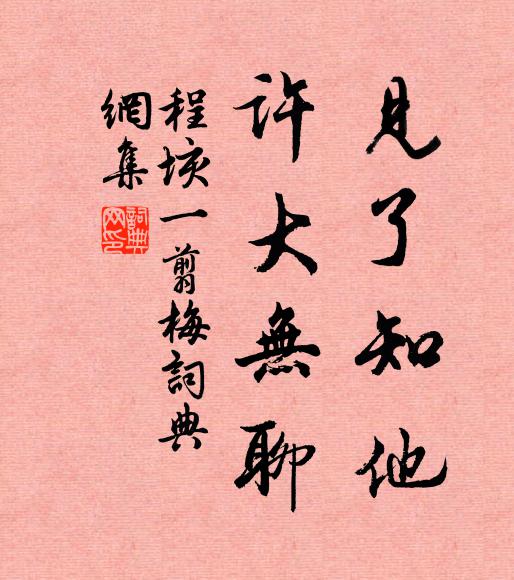 見了知他
許大無聊
程垓一翦梅詞典
網集
詞典
网印